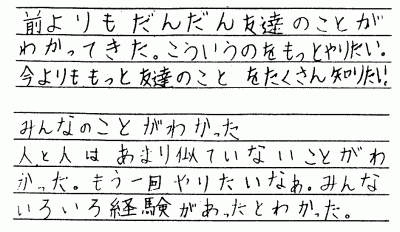 前よりもだんだん友達のことが
わかってきた。こういうのをもっとやりたい。
今よりももっと友達のこと をたくさん知りたい!
みんなのことがわかった
人と人はあまり似ていないことがわ
かった。もう一回やりたいなあ。みんな
いろいろ経験があったとわかった。